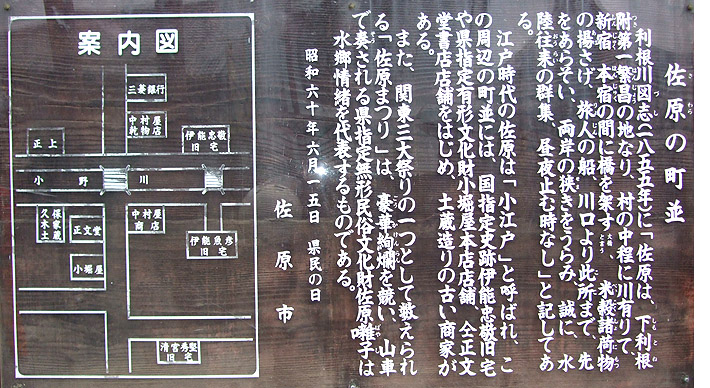 佐原の町並
利根川図志(一八五五年)に「佐原は、下利根
附第一繁昌の地なり、村の中程に川有りて、
新宿、本宿の間に橋を架す、米穀諸荷物
の揚さげ、旅人の船、川口より此所まで、先
をあらそい、両岸の狭きをうらみ、誠に、水
陸往来の群集、昼夜止む時なし」と記してあ
る。
江戸時代の佐原は「小江戸」と呼ばれ、こ
の周辺の町並には、国指定史跡伊能忠敬旧宅
や県指定有形文化財小堀屋本店店舗、仝正文
堂書店店舗をはじめ、土蔵造りの古い商家が
ある。
また、関東三大祭りの一つとして数えられ
る「佐原まつり」は、豪華絢爛を競い、山車
で奏される県指定無形民俗文化財佐原囃子は
水郷情緒を代表するものである。
昭和六十年六月一五日 県民の日
佐原市
案内図
三菱銀行
中村屋
乾物店
伊能忠敬
旧宅
正上
小野川
久保
木家
土蔵
正文堂
中村屋
商店
伊能魚彦
旧宅
小堀屋
清宮秀堅
旧宅